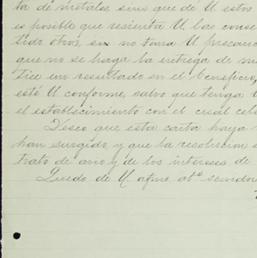 ta de metales sino que de U estos
es posible que resienta U las conse
tirar otros, si no toma U precauci
que no se haga la entrega de me
tice un resultado en el beneficio,
esté U conforme, salvo que tenga
el establecimiento con el cual cele
Deseo que esta carta haya
han surgido y que la resolucion
trato de ano y de los intereses de
Quedo de U afmo. atto. servidor